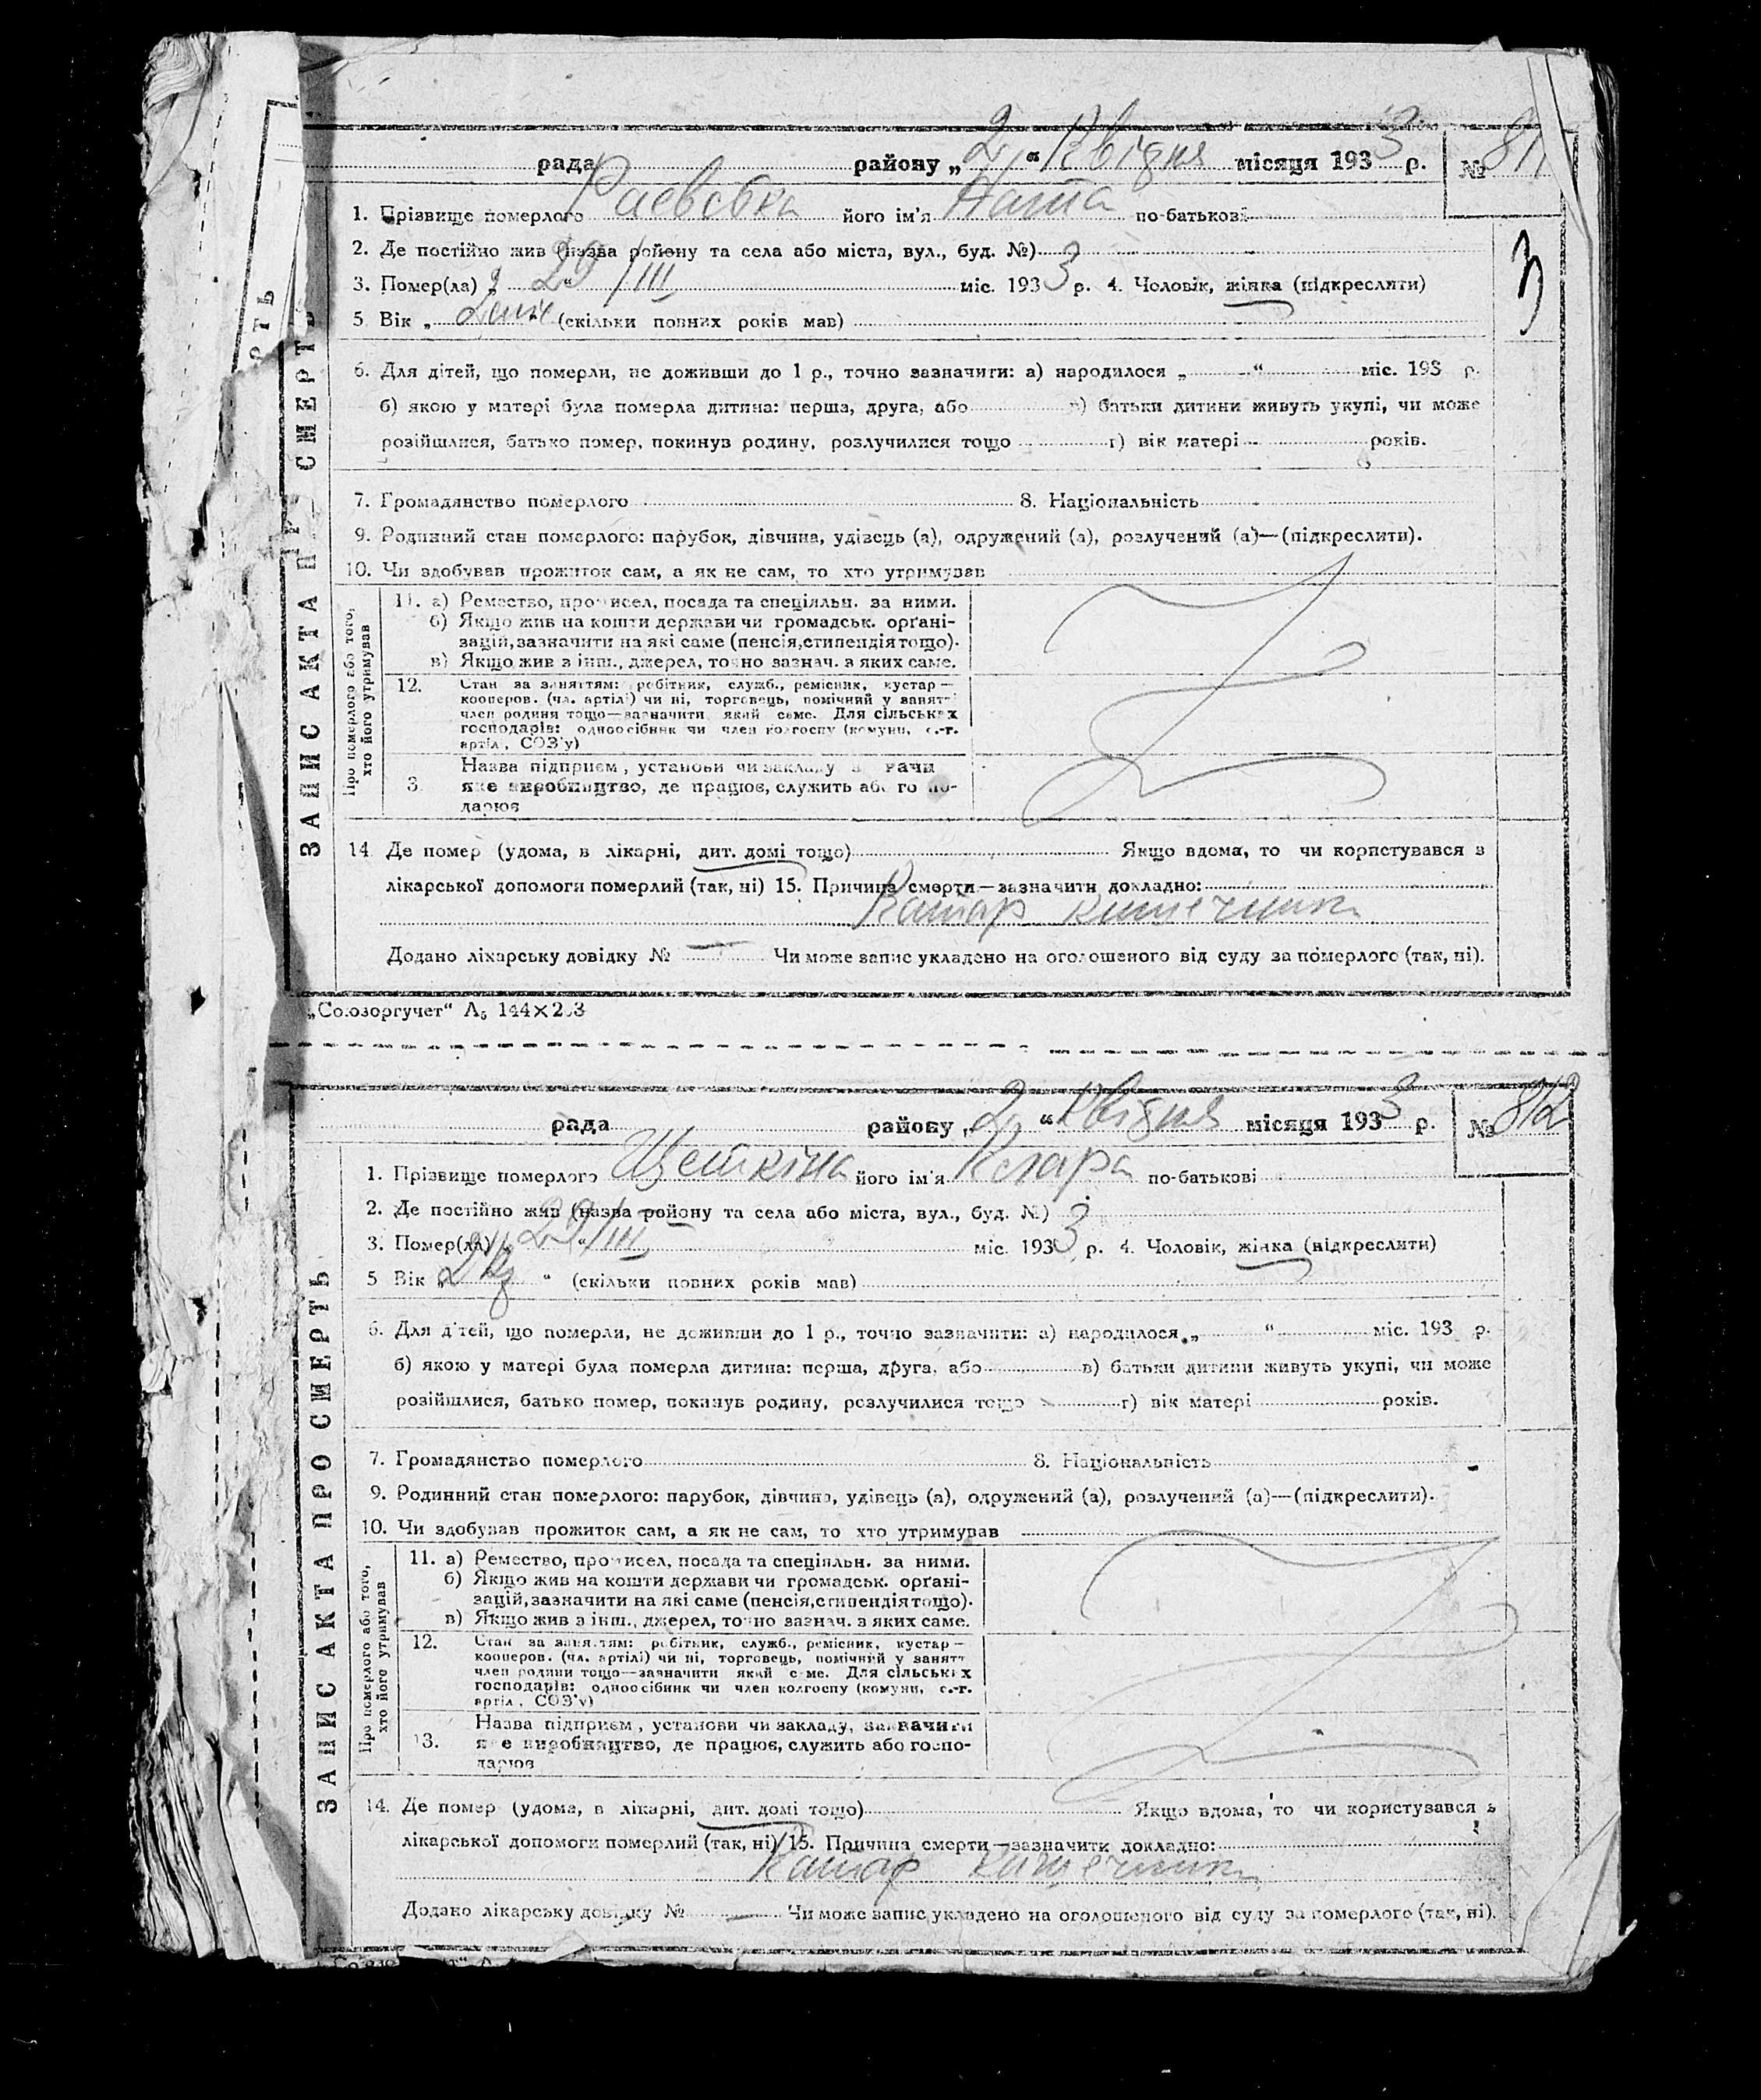 рада району „2“ Квітня місяця 1933 р. № 811
1. Прізвище померлого Раевска його ім'я Ната по-батькові
2. Де постійно жив (назва району та села або міста, вул., буд. №)
3. Помер(ла) „ 29/III міс. 1933 р. 4. Чоловік, жінка (підкреслити)
3
5 Вік „ “ (скільки повних років мав)
6. Для дітей, що померли, не доживши до 1 р., точно зазначити: а) народилося „ “ міс. 193 р.
б) якою у матері була померла дитина: перша, друга, або в) батьки дитини живуть укупі, чи може
розійшлися, батько помер, покинув родину, розлучилися тощо г) вік матері років.
7. Громадянство померлого 8. Національність
9. Родинний стан померлого: парубок, дівчина, удівець (а), одружений (а), розлучений (а)—(підкреслити).
10. Чи здобував прожиток сам, а як не сам, то хто утримував
ЗАПИС АКТА ПРО СМЕРТЬ
Про померлого або того,
хто його утримував
11. а) Ремество, промисел, посада та спеціяльн. за ними.
б) Якщо жив на кошти держави чи громадськ. органі-
зацій, зазначити на які саме (пенсія, стипендія тощо).
в) Якщо жив з інш., джерел, точно зазнач. з яких саме.
12. Стан за заняттям: робітник, служб., ремісник, кустар—
кооперов. (чл. артілі) чи ні, торговець, помічний у занятт
член родини тощо—зазначити який саме. Для сільських
господарів: одноосібник чи член колгоспу (комуни, с.-г.
артіл., СОЗ'у)
Назва підприєм, установи чи закладу
3. яке виробництво, де працює, служить або го по-
дарює
14. Де помер (удома, в лікарні, дит. домі тощо) Якщо вдома, то чи користувався з
лікарської допомоги померлий (так, ні) 15. Причина смерти—зазначити докладно:
Катар кишечника
Додано лікарську довідку № — Чи може запис укладено на оголошеного від суду за померлого (так, ні).
„Союзоргучет“ А₅ 144×203
рада району „2“ Квітня місяця 1933 р. № 812
1. Прізвище померлого Щеткіна його ім'я Клара по-батькові
2. Де постійно жив (назва району та села або міста, вул., буд. №)
3. Помер(ла) „ 29/III міс. 1933 р. 4. Чоловік, жінка (підкреслити)
5 Вік „ “ (скільки повних років мав)
6. Для дітей, що померли, не доживши до 1 р., точно зазначити: а) народилося „ “ міс. 193 р.
б) якою у матері була померла дитина: перша, друга, або в) батьки дитини живуть укупі, чи може
розійшлися, батько помер, покинув родину, розлучилися тощо г) вік матері років.
7. Громадянство померлого 8. Національність
9. Родинний стан померлого: парубок, дівчина, удівець (а), одружений (а), розлучений (а)—(підкреслити).
10. Чи здобував прожиток сам, а як не сам, то хто утримував
ЗАПИС АКТА ПРО СМЕРТЬ
Про померлого або того,
хто його утримував
11. а) Ремество, промисел, посада та спеціяльн. за ними.
б) Якщо жив на кошти держави чи громадськ. органі-
зацій, зазначити на які саме (пенсія, стипендія тощо).
в) Якщо жив з інш., джерел, точно зазнач. з яких саме.
12. Стан за заняттям: робітник, служб., ремісник, кустар—
кооперов. (чл. артілі) чи ні, торговець, помічний у занятт
член родини тощо—зазначити який саме. Для сільських
господарів: одноосібник чи член колгоспу (комуни, с.-г.
артіл., СОЗ'у)
Назва підприєм, установи чи закладу, зазначити
13. яке виробництво, де працює, служить або госпо-
дарює
14. Де помер (удома, в лікарні, дит. домі тощо) Якщо вдома, то чи користувався з
лікарської допомоги померлий (так, ні) 15. Причина смерти—зазначити докладно:
Катар кишечника
Додано лікарську довідку № — Чи може запис укладено на оголошеного від суду за померлого (так, ні).